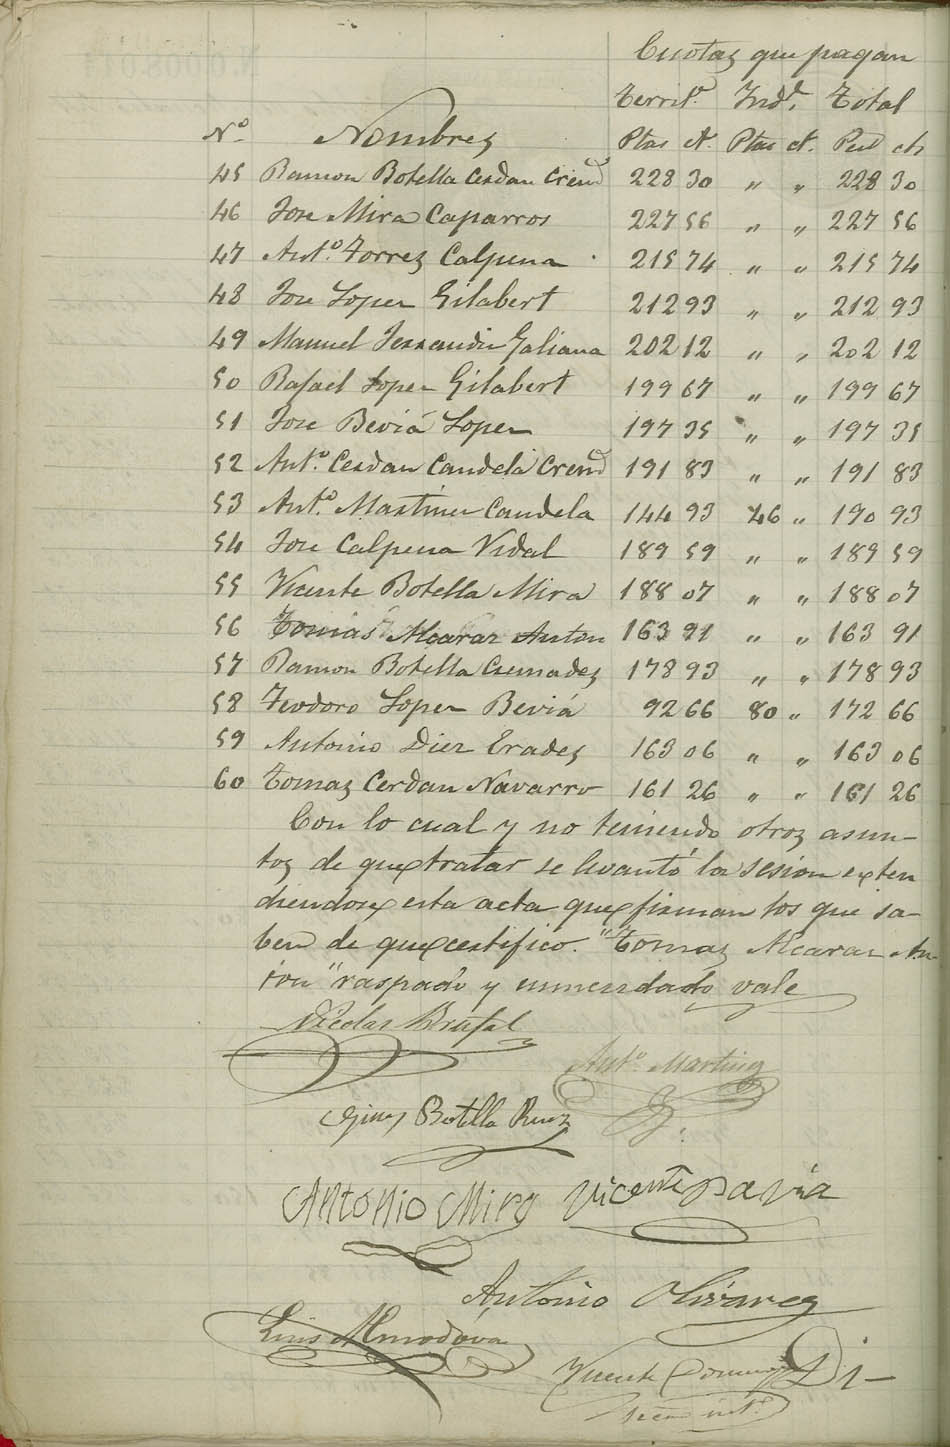 Cuotas que pagan
Territ.l Ind.l Total
Nº Nombres Ptas ct. Ptas ct. Pest cts
45 Ramon Botella Cerdan Crevd 228 30 " " 228 30
46 Jose Mira Caparros 227 56 " " 227 56
47 Antº. Torres Calpena 215 74 " " 215 74
48 Jose Lopez Gilabert 212 93 " " 212 93
49 Manuel Ferrandiz Galiana 202 12 " " 202 12
50 Rafael Lopez Gilabert 199 67 " " 199 67
51 Jose Beviá Lopez 197 35 " " 197 35
52 Antº. Cerdan Candela Crevd 191 83 " " 191 83
53 Antº. Martinez Candela 144 93 46 " 190 93
54 Jose Calpena Vidal 189 59 " " 189 59
55 Vicente Botella Mira 188 07 " " 188 07
56 Tomas Alcaraz Anton 163 91 " " 163 91
57 Ramon Botella Cremades 178 93 " " 178 93
58 Teodoro Lopez Beviá 92 66 80 " 172 66
59 Antonio Diez Erades 163 06 " " 163 06
60 Tomas Cerdan Navarro 161 26 " " 161 26
Con lo cual y no teniendo otros asun-
tos de que tratar se levantó la sesion exten
diendose esta acta que firman los que sa-
ben de que certifico. "Tomas Alcaraz An-
ton" raspado y enmendado vale
Nicolas Brufal
Antº. Martinez
Gines Botella Ruiz
Antonio Mira Vicente Davia
Antonio Olivares
Luis Almodóva
Vicente